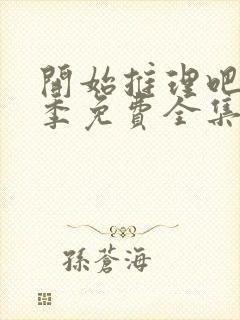 開始推理吧
季免費全集
孫蒼海